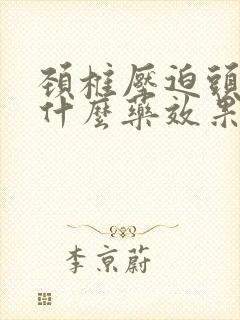 頚椎壓迫頭
什麼藥效果
李京蔚